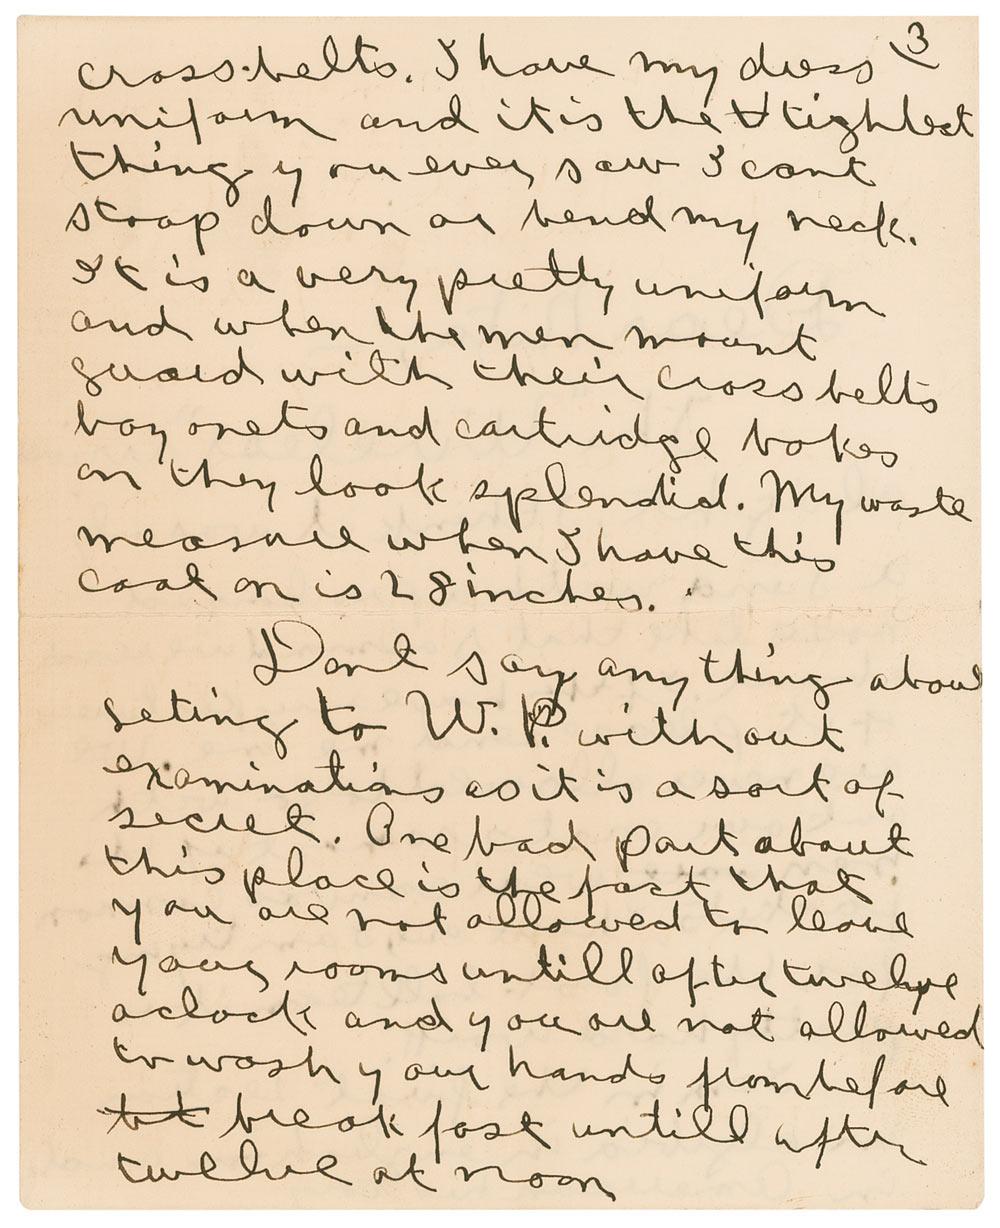 3
cross-belts. I have my dress
uniform and it is the tightest
thing you ever saw I cant
stoop down or bend my neck.
It is a very pretty uniform
and when the men mount
guard with their cross belts
bayonets and cartridge boxes
on they look splendid. My waste
measure when I have this
coat on is 28 inches.
Dont say any thing about
geting to W. P. without
examinations as it is a sort of
secret. One bad part about
this place is the fact that
you are not allowed to leave
your rooms untill after twelve
oclock and you are not allowed
to wash your hands from before
break fast untill after
twelve at noon